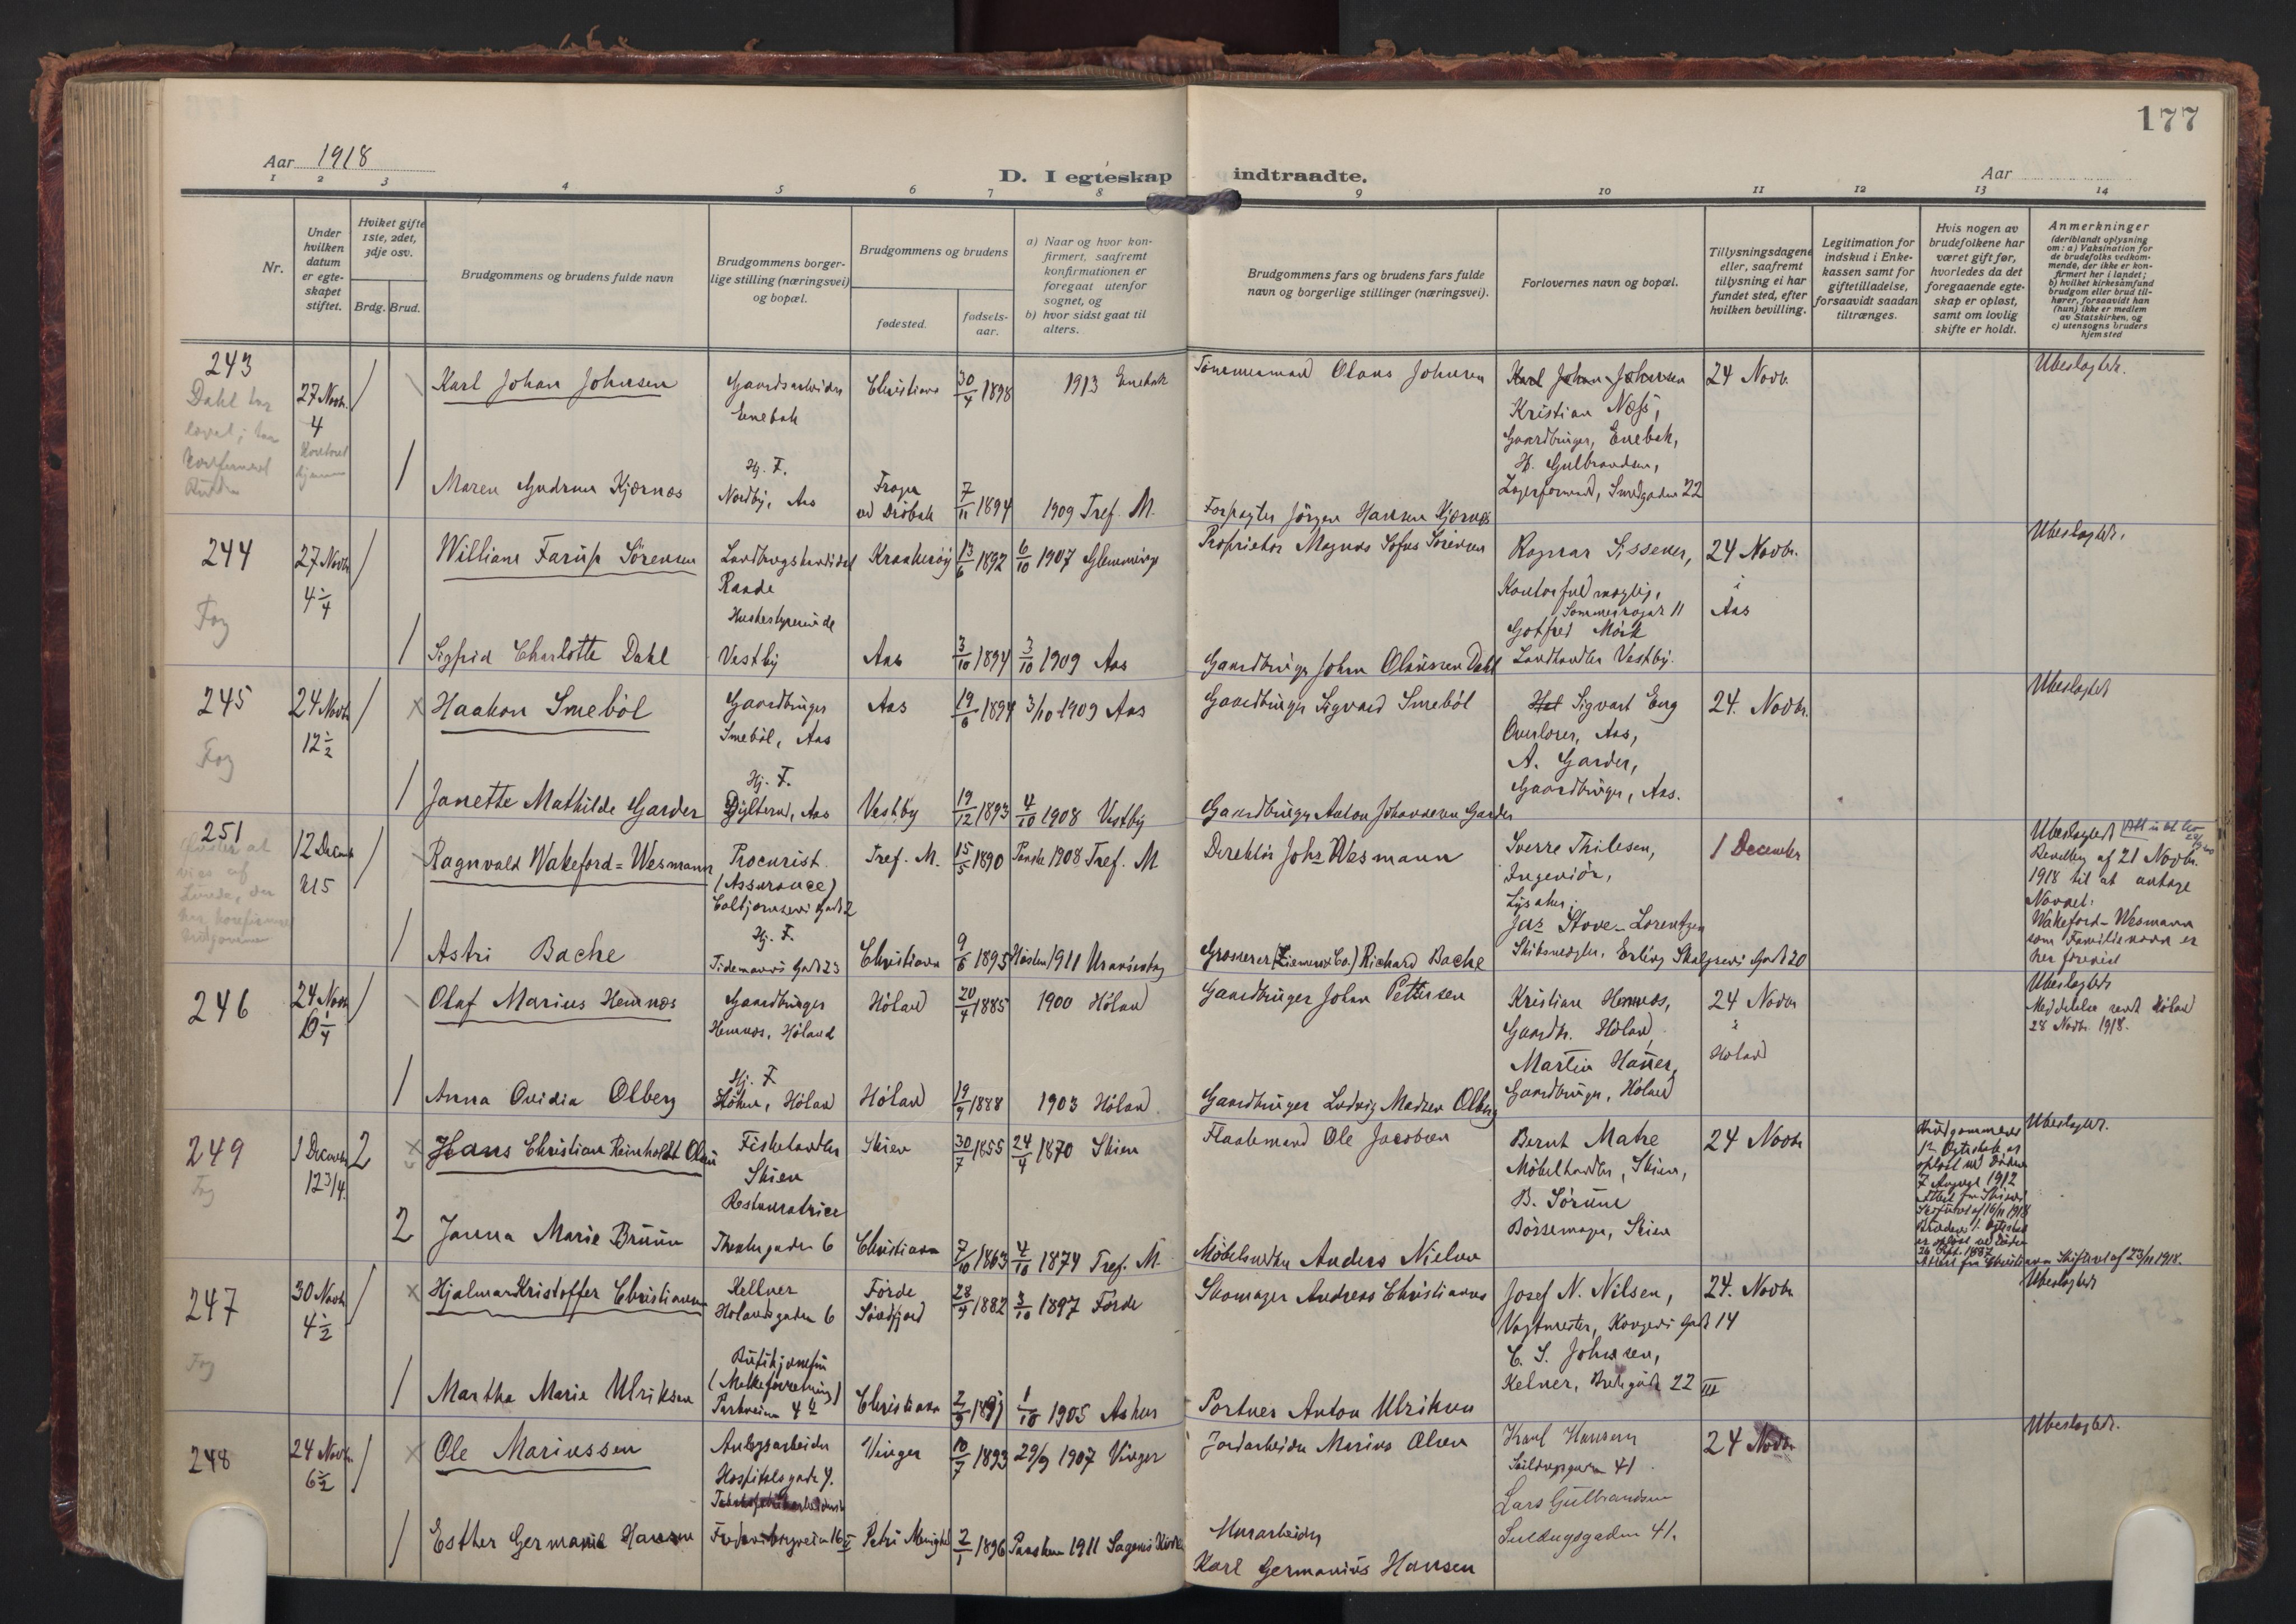 177
Aar 1918
D. I egteskap indtraadte.
Aar
1 2 3 4 5 6 7 8 9 10 11 12 13 14
Nr.
Under
hvilken
datum
er egte-
skapet
stiftet.
Hviket gifte
1ste, 2det,
3dje osv.
Brdg. Brud.
Brudgommens og brudens fulde navn
Brudgommens borger-
lige stilling (næringsvei)
og bopæl.
Brudgommens og brudens
fødested.
fødsels-
aar.
a) Naar og hvor kon-
firmert, saafremt
konfirmationen er
foregaat utenfor
sognet, og
b) hvor sidst gaat til
alters.
Brudgommens fars og brudens fars fulde
navn og borgerlige stillinger (næringsvei).
Forlovernes navn og bopæl.
Tillysningsdagene
eller, saafremt
tillysning ei har
fundet sted, efter
hvilken bevilling.
Legitimation for
indskud i Enke-
kassen samt for
giftetilladelse,
forsaavidt saadan
tiltrænges.
Hvis nogen av
brudefolkene har
været gift før,
hvorledes da det
foregaaende egte-
skap er opløst,
samt om lovlig
skifte er holdt.
Anmerkninger
(deriblandt oplysning
om: a) Vaksination for
de brudefolks vedkom-
mende, der ikke er kon-
firmert her i landet;
b) hvilket kirkesamfund
brudgom eller brud til-
hører, forsaavidt han
(hun) ikke er medlem
av Statskirken, og
c) utensogns bruders
hjemsted
243
27 Novb.
4
1
Karl Johan Johnsen
Gaardsarbeider
Enebak
Christiania
30/4 1898
1913 Enebak
Tømmermand Olaus Johnsen
Karl Johan Johnsen
Kristian Næss,
Gaardbruger, Enebak,
H. Gulbrandsen,
Lagerformand, Smedgaden 22
24 Novb.
Ubeslagtet.
1
Maren Gudrun Kjærnæs
Hj. F.
Nordby, Aas
Frogn
ved Drøbak
7/11 1894
1909 Tref. M.
Forpagter Jørgen Hansen Kjærnæs
244
27 Novb.
4 1/4
Fog
1
William Farup Sørensen
Landbrugskandidat
Raade
Kraakerøy
13/6 1892
6/10 1907 Glemminge
Proprietør Magnus Sofus Sørensen
Ragnar Sissener,
Kontorfuldmægtig,
Sommerrogat 11
Gotfred Mörk
Landhandler Vestby.
24 Novbr.
i
Aas
Ubeslagtet.
1
Sigfrid Charlotte Dahl
Husbestyrerinde
Vestby
Aas
3/10 1894
3/10 1909 Aas
Gaardbruger Johan Olaussen Dahl
245
24 Novb.
12 1/2
Fog
1
Haakon Smebøl
Gaardbruger
Smebøl, Aas
Aas
19/6 1894
3/10 1909 Aas
Gaardbruger Sigvard Smebøl
Sigvart Eng
Overlærer, Aas,
A. Garder,
Gaardbruger, Aas.
24. Novbr.
Ubeslagtet
1
Janette Mathilde Garder
Hj. F.
Dyltern, Aas
Vestby
19/12 1893
4/10 1908 Vestby
Gaardbruger Anton Johannesen Garder
251
12 Decemb
kl 5
1
Ragnvald Wakeford=Wesmann
Procurist
(Assurance)
Colbjørnsens Gade 2
Tref. M.
15/5 1890
Paaske 1908 Tref. M
Direktør Johs Wesmann
Sverre Thilesen,
Ingeniør,
Lysaker;
Jas Stove-Lorentzen
Skibsmegler, Erling Skalgsens Gade 20
1 December
Ubeslagtet
Bevilling af 21 Novbr.
1918 til at antage
Navnet:
Wakeford-Wesmann
som Familienavn er
her forevist
1
Astri Bache
Hj. F.
Tidemands Gade 23
Christiania
9/6 1895
Høsten 1911 Uranienborg
Grosserer Richard Bache
246
24 Novb
6 1/4
1
Olaf Marius Hemnæs
Gaardbruger
Hemnæs, Høland
Høland
20/4 1885
1900 Høland
Gaardbruger John Pettersen
Kristian Hemnæs,
Gaardbr. Høland
Martin Haner,
Gaardbruger, Høland
24 Novbr
i
Høland
Ubeslagtet
Meddelelse sendt Høland
28 Novbr. 1918.
1
Anna Ovidia Olberg
Hj. F
Høland
Høland
19/9 1888
1903 Høland
Gaardbruger Ludvig Madsen Olberg
249
1 Decemb
12 3/4
Fog
2
Hans Christian Reinholdt Olsen
Fiskehandler
Skien
Skien
30/7 1855
24/4 1870 Skien
Flaatemand Ole Jacobsen
Bernt Matre
Møbelhandler, Skien,
B. Sörüm
Børsemager, Skien
24 Novbr
Brudgommens
1ste Egteskab er
opløst ved Døden
7 August 1912
Attest fra Skiens
Skifteret af 16/11 1918
Brudens 1. Egteskab
er opløst ved Døden
26 Sept. 1887
Attest fra Christiania Skifteret af 23/11 1918.
Ubeslagtet.
2
Janna Marie Bruun
Restauratrice
Theatergaden 6
Christiania
7/10 1863
4/10 1874 Tref. M.
Møbelsnedker Anders Nielsen
247
30 Novb
4 1/2
Fog
1
Hjalmar Kristoffer Christiansen
Kellner
Holandsgaden 6
Førde
Søndfjord
28/9 1882
3/10 1897 Førde
Skomager Andreas Christiansen
Josef N. Nilsen,
Vagtmester, Kongens Gade 14
C. S. Johnsen,
Kelner, Bredegade 22 III
24. Novbr
Ubeslagtet
1
Martha Marie Ulriksen
(Melkeforretning)
Parkveien 4 b
Christiania
2/9 1891
1/10 1905 Asker
Portner Anton Ulriksen
248
24 Novbr
6 1/2
1
Ole Mariussen
Anlegsarbeider
Hospitalsgade 4.
Vinger
10/7 1893
29/9 1907 Vinger
Jordarbeider Marius Olsen
Karl Hansen
41
Lars Gulbrandsen
Seildugsgaden 41.
24 Novbr
Ubeslagtet.
1
Esther Germanie Hansen
Petri Menighed
2/1 1896
Paasken 1911 Sagenes Kirke
Murarbeider
Karl Germanius Hansen